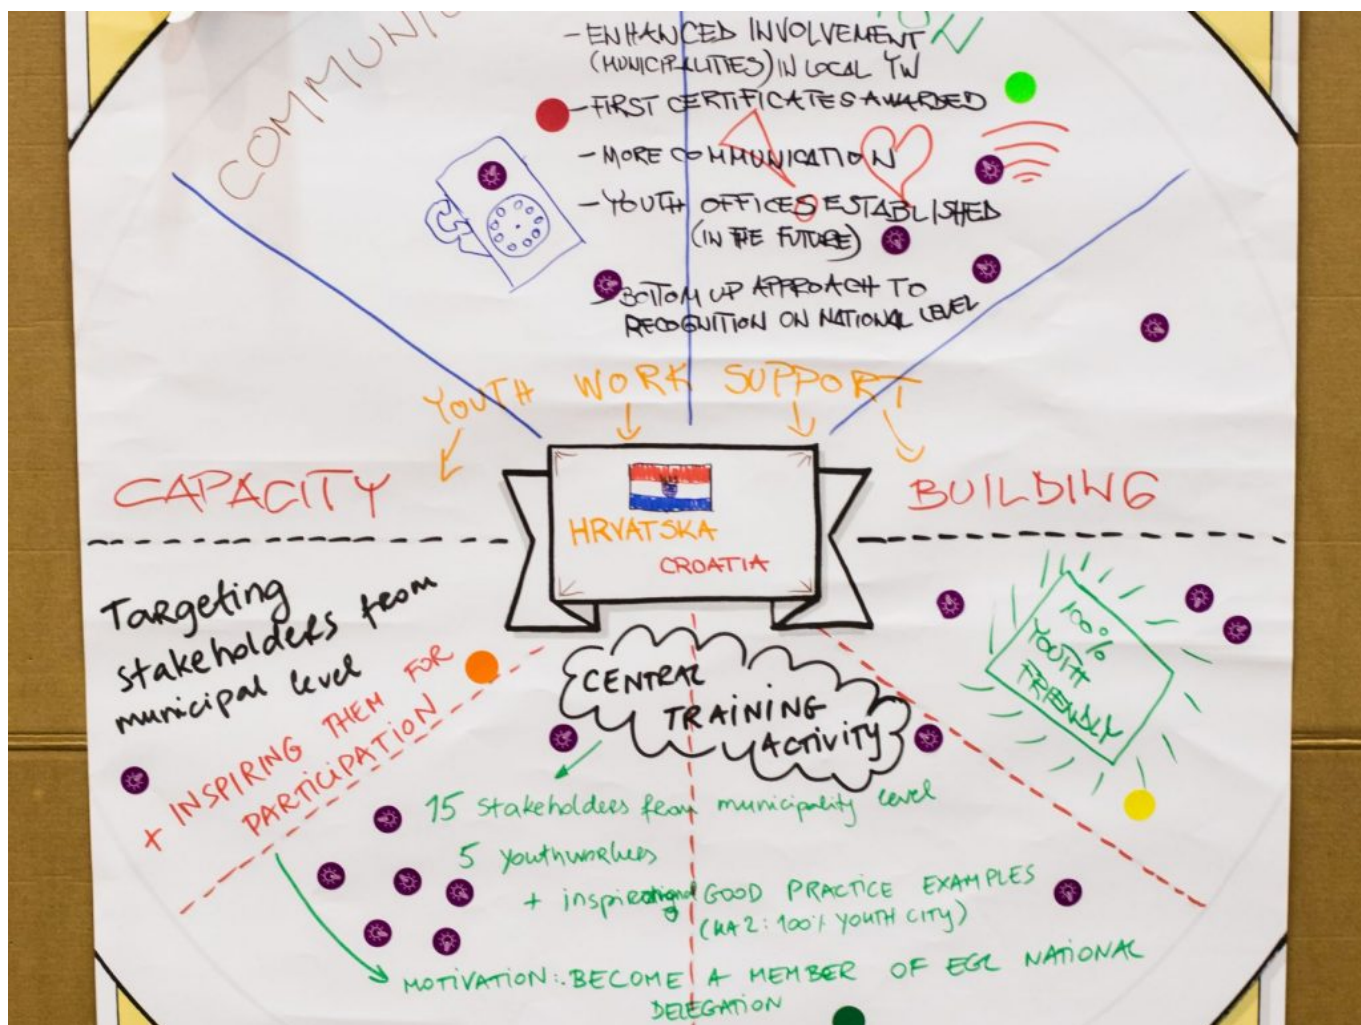 - ENHANCED INVOLVEMENT
(MUNICIPALITIES) IN LOCAL YW
- FIRST CERTIFICATES AWARDED
- MORE COMMUNICATION
- YOUTH OFFICES ESTABLISHED
(IN THE FUTURE)
- BOTTOM UP APPROACH TO
RECOGNITION ON NATIONAL LEVEL
YOUTH WORK SUPPORT
CAPACITY BUILDING
HRVATSKA
CROATIA
Targeting
stakeholders from
municipal level
+ INSPIRING THEM FOR
PARTICIPATION
100%
YOUTH
FRIENDLY
CENTRAL
TRAINING
ACTIVITY
15 stakeholders from municipality level
5 youthworkers
+ GOOD PRACTICE EXAMPLES
(KA2: 100% YOUTH CITY)
MOTIVATION: BECOME A MEMBER OF EGL NATIONAL
DELEGATION